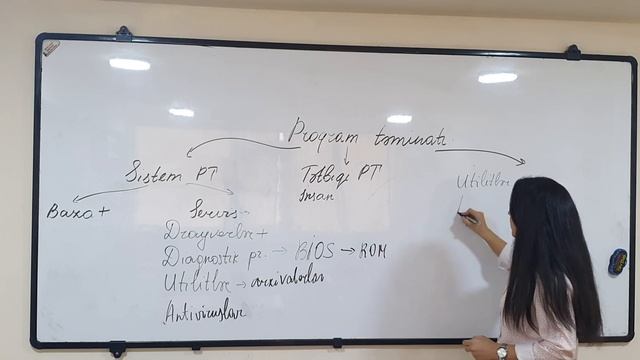 Program təminatı
Sistem PT
Tətbiqi PT
Utilitlər
İnsan
Baza +
Servis
Drayverlər +
Diaqnostik pr. → BİOS → ROM
Utilitlər → arxivatorlar
Antiviruslar